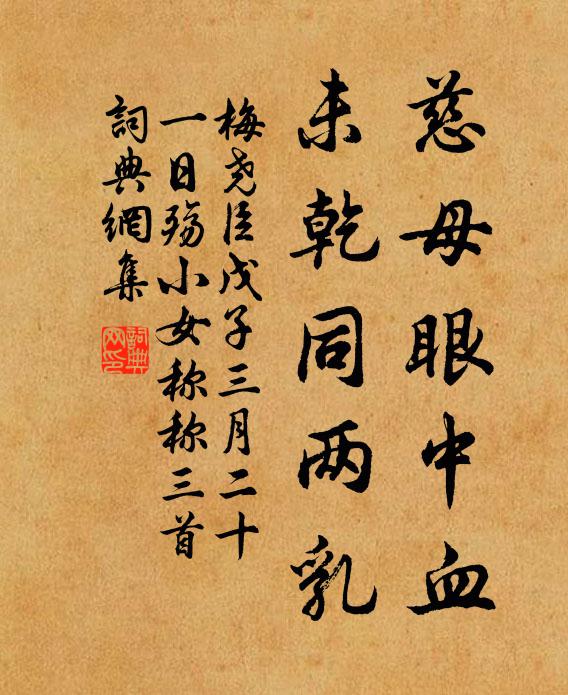 慈母眼中血
未乾同两乳
梅尧臣戊子三月二十
一日殇小女称称三首
詞典網集
詞典网印